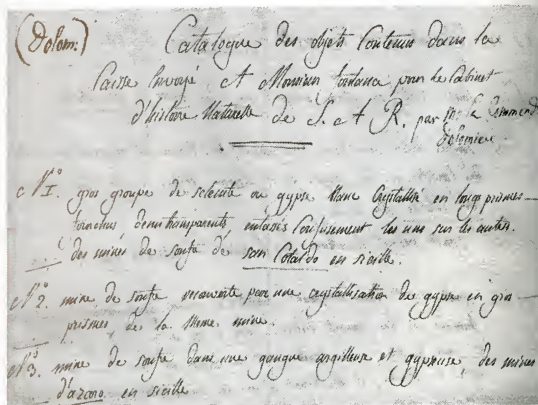 (Dolom.)
Catalogue des objets Contenus dans la
Caisse Envoyé A Monsieur fontana pour le Cabinet
d'histoire Naturelle de S. A R. par Mr. le Command
dolomieu
N° 1. gros groupe de selenite ou gypse blanc Crystallisé en longs prismes
demitransparents, entassés Confusement les uns sur les autres.
des mines de soufre de san Cataldo en sicille.
N° 2. mine de soufre recouverte par une crystallisation de gypse en gros
prismes, de la Meme mine.
N° 3. mine de soufre dans une gangue argilleuse et gypseuse, des mines
d'azaro en sicille